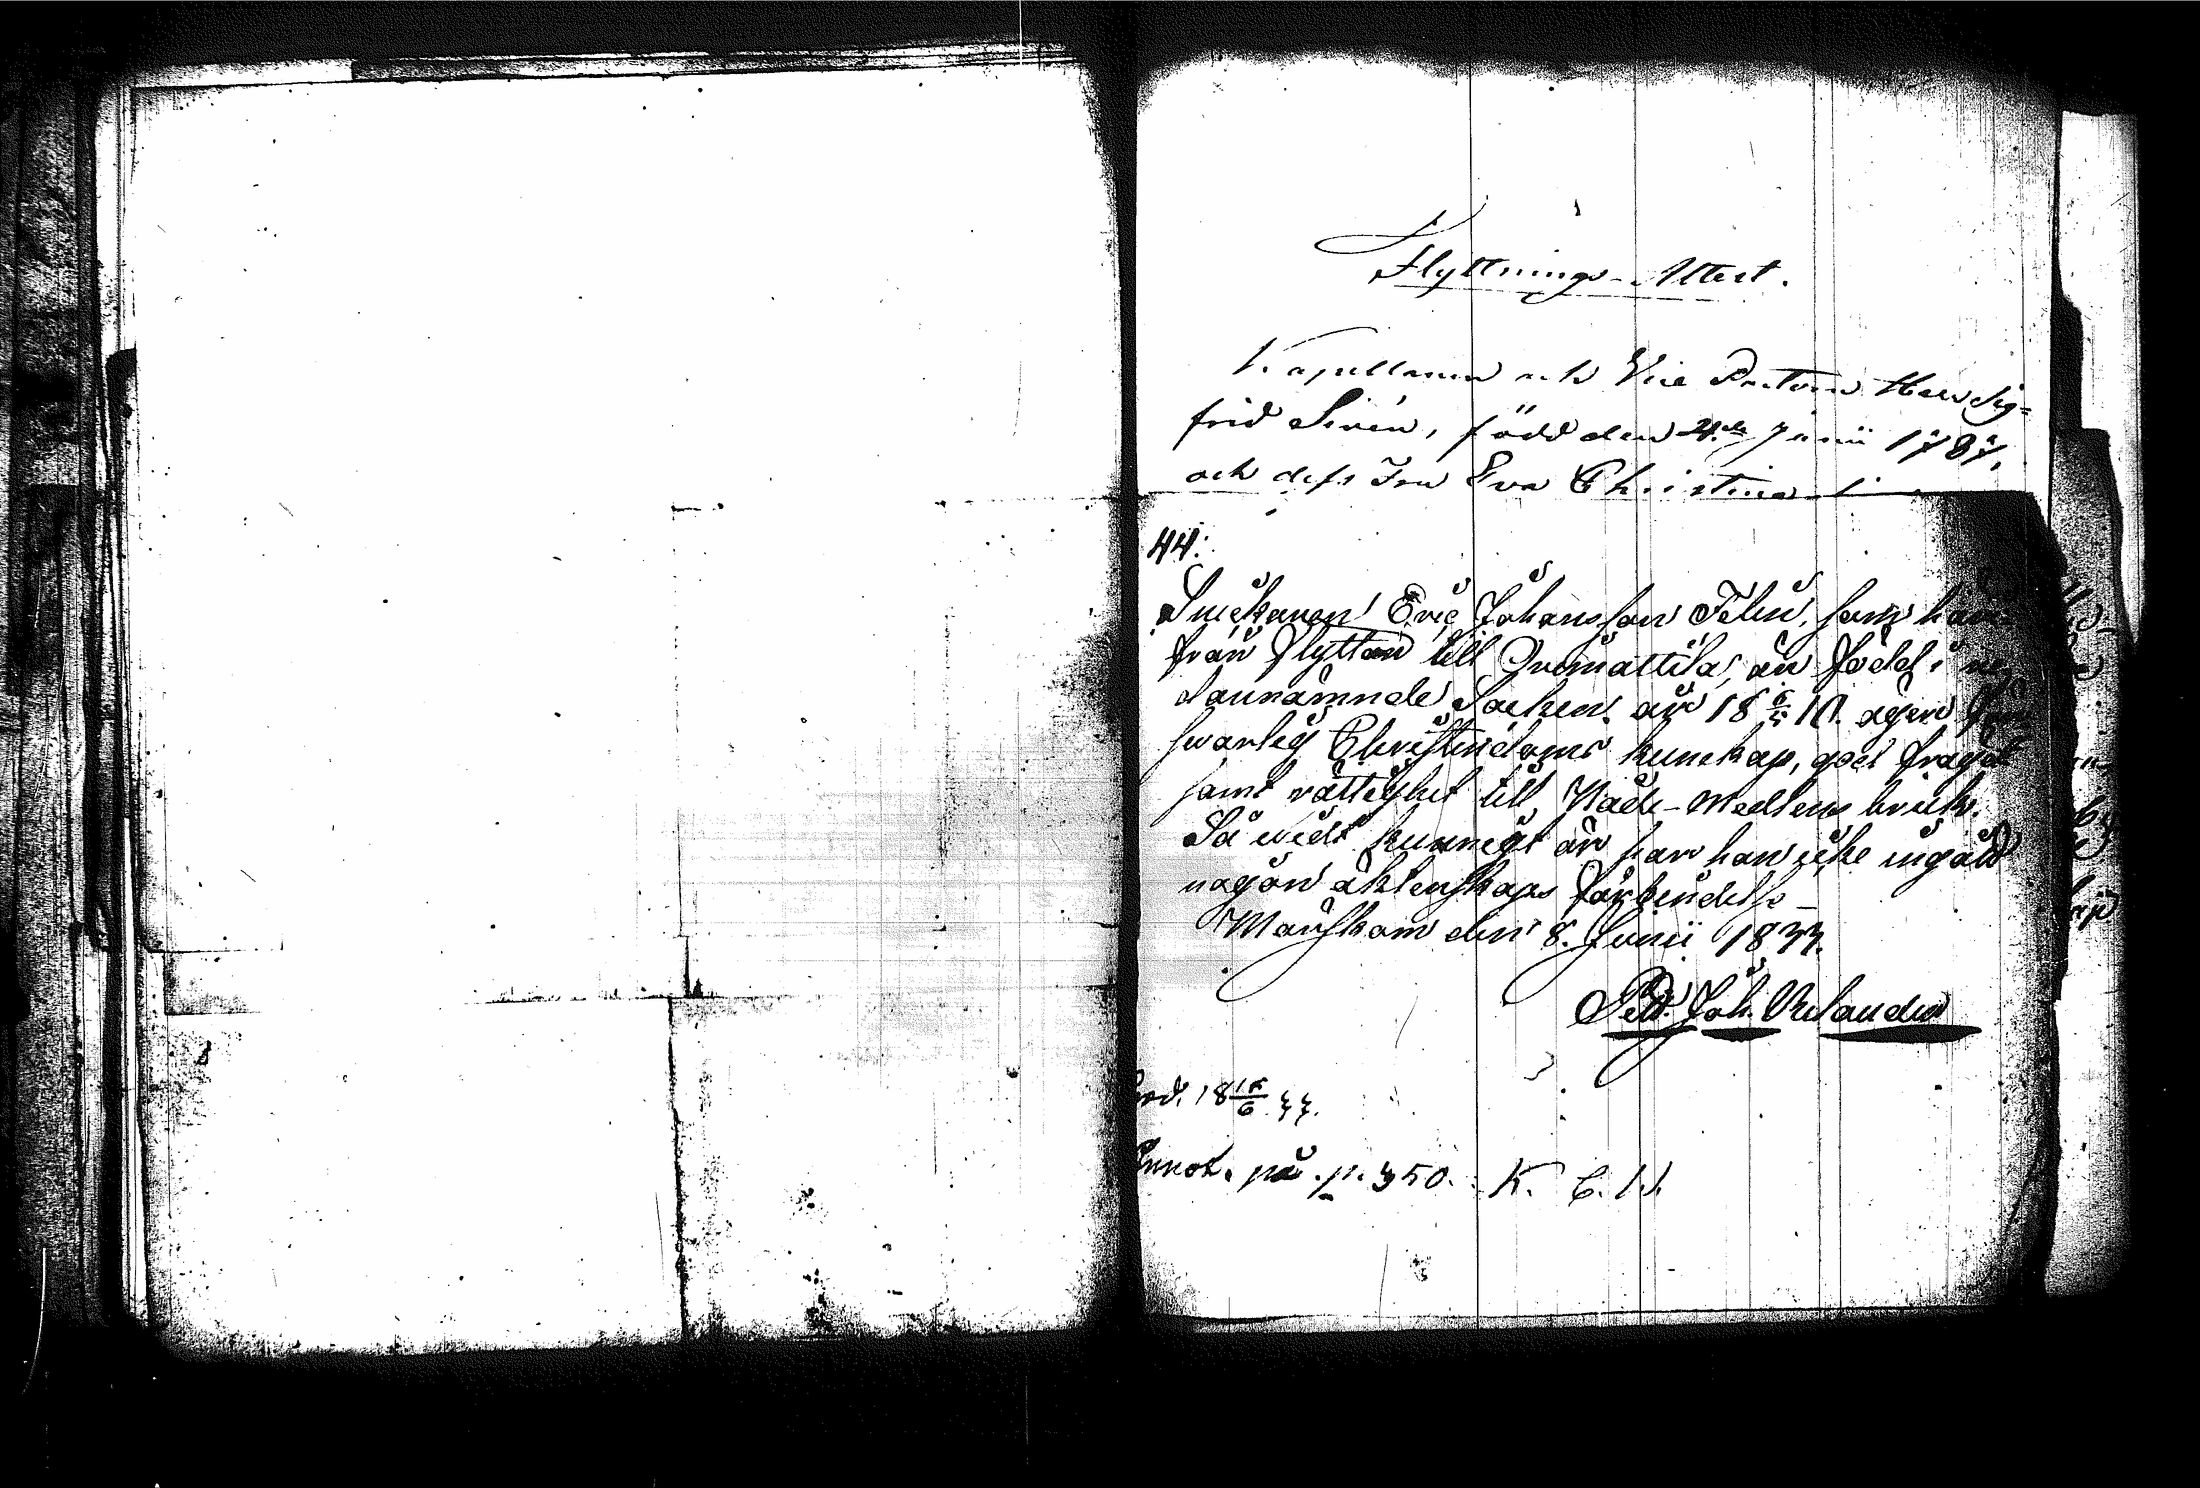 Flyttnings-Attest.
Kapellanen och Vice Pastorn Herr Sig-
frid Sirén, född den 21ste Junii 1787,
och dess Fru Eva Christina
44:
Snickaren Eric Johansson Felin, som
från flyttad till Qvimattila, är född i
dannämnde Socken år 18 6/5 10. äger för
svarlig Christendoms kunskap, god fragd
samt rättighet till Nåde-Medlens bruk.
Så vidt kunnigt är har han icke ingådt
någon äktenskaps förbindelse
Mariæ den 8. Junii 1833.
Petr. Joh. Relander
Prod. 18 15/6 33.
Annot. på p. 350. K.